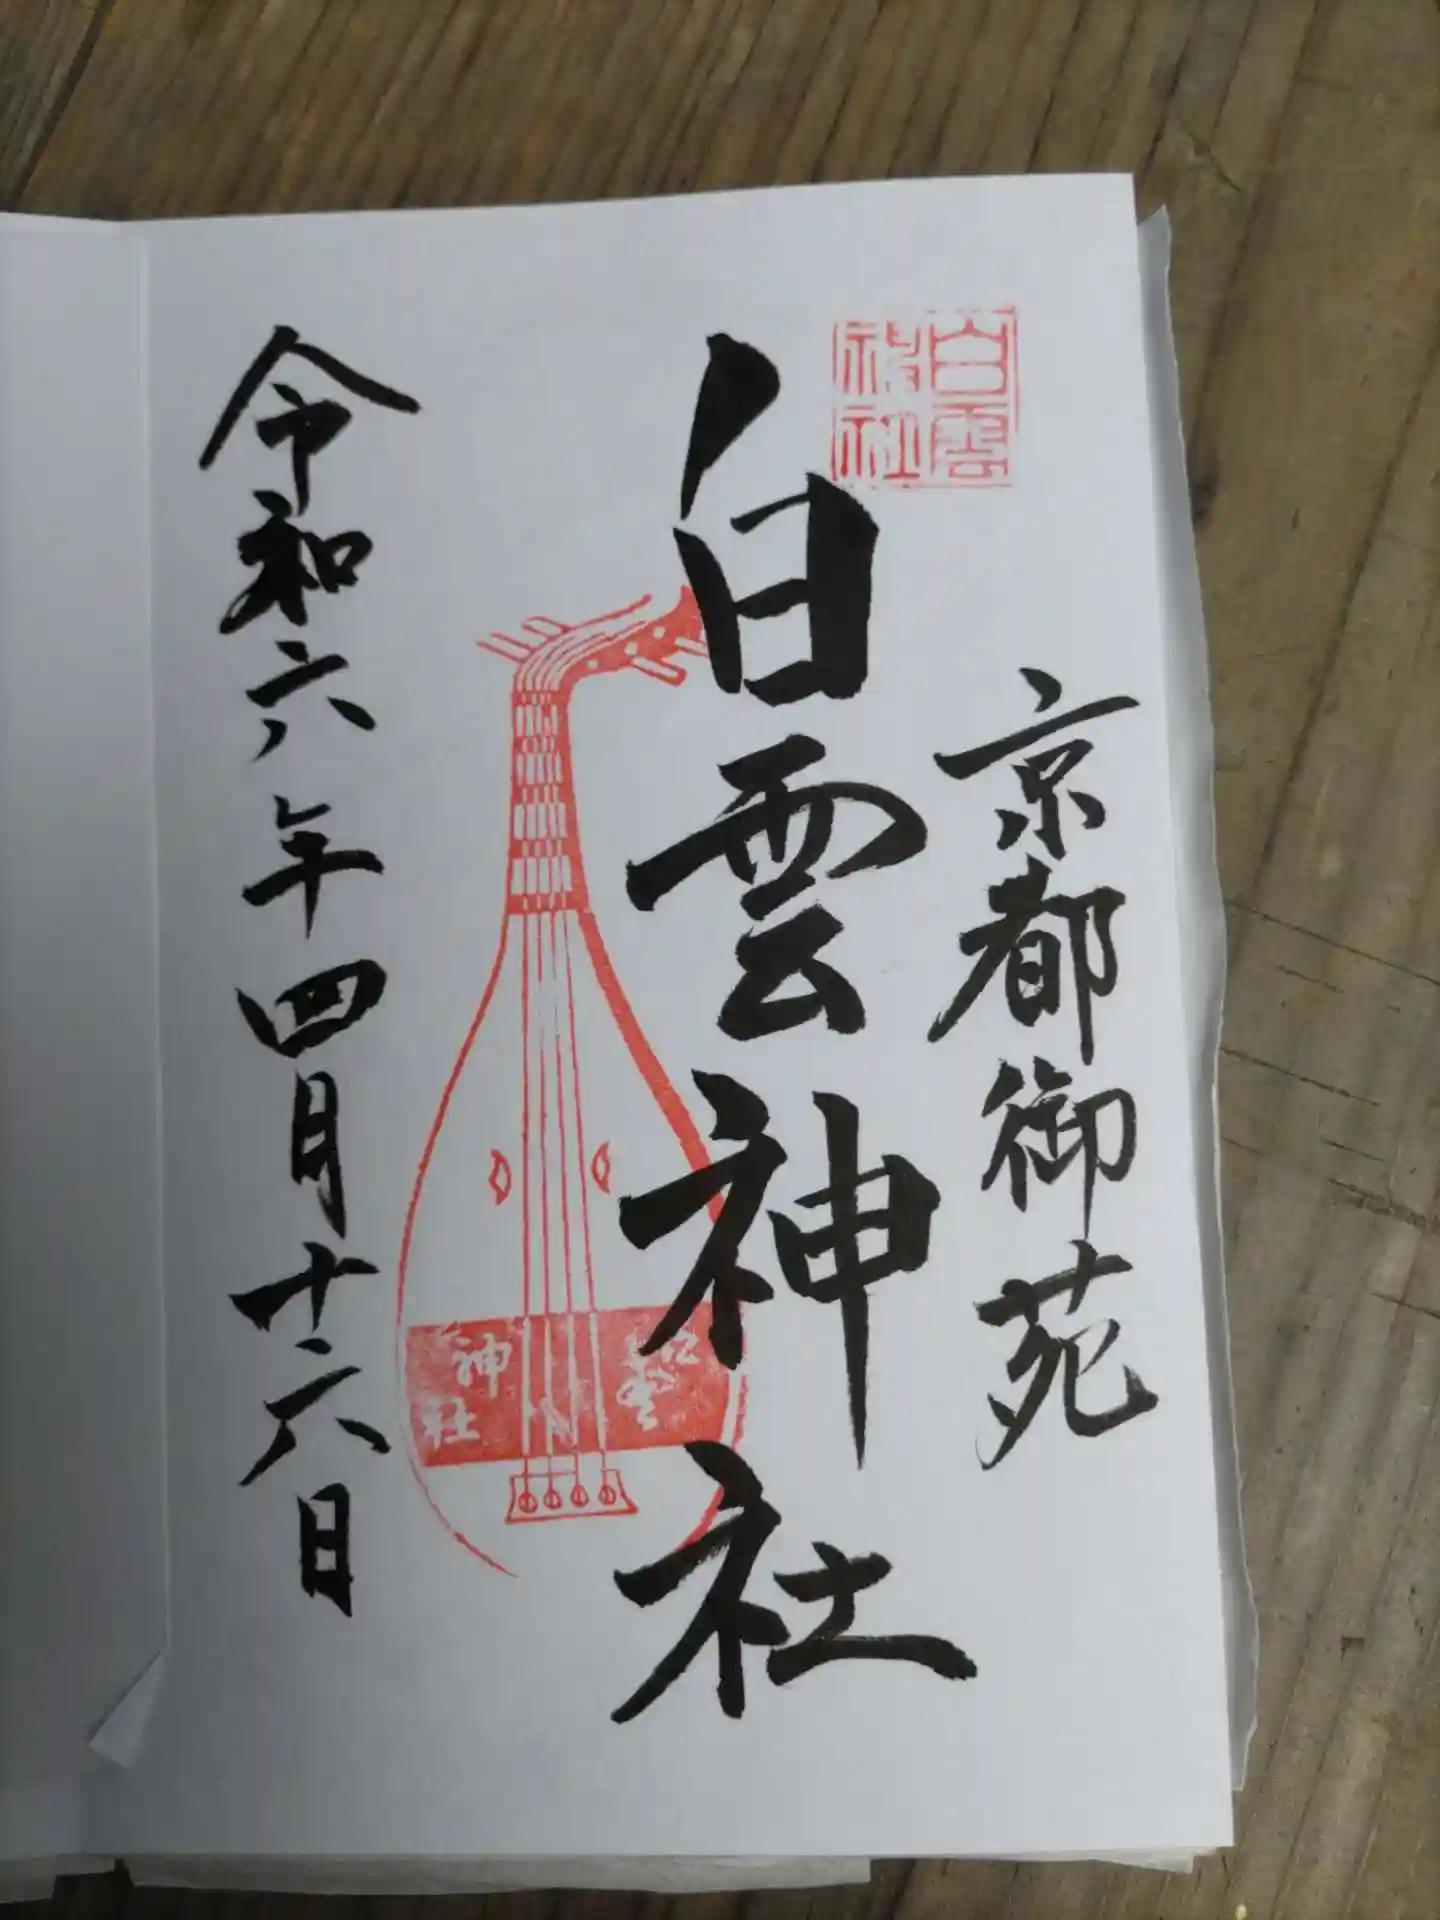 京都御苑
白雲
神社
白雲神社
神社
令和六年四月十六日